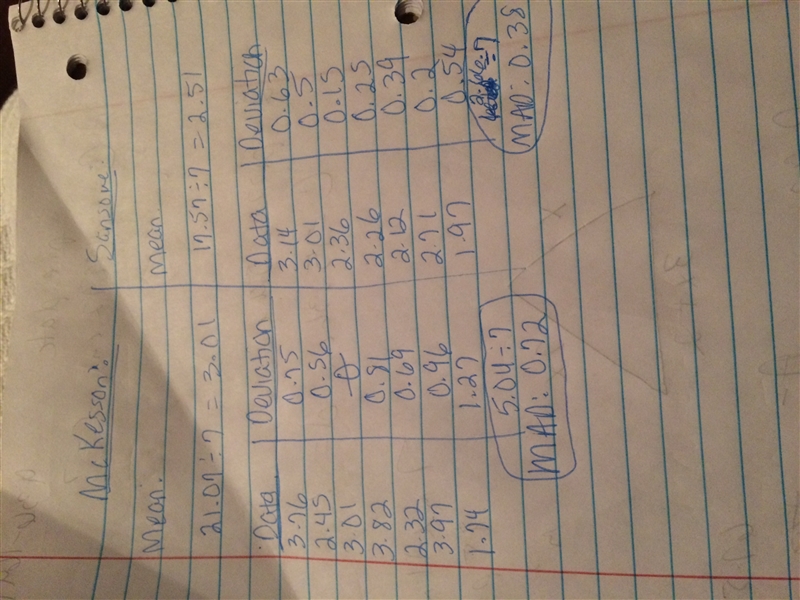 McKesson:
Mean:
21.07÷7 = 3.01
Data Deviation
3.76 0.75
2.45 0.56
3.01 0
3.82 0.81
2.32 0.69
3.97 0.96
1.74 1.27
5.04÷7
MAD: 0.72
Sansome:
Mean
17.57÷7 = 2.51
Data Deviation
3.14 0.63
3.01 0.5
2.36 0.15
2.26 0.25
2.12 0.39
2.71 0.2
1.97 0.54
2.66÷7
MAD: 0.38